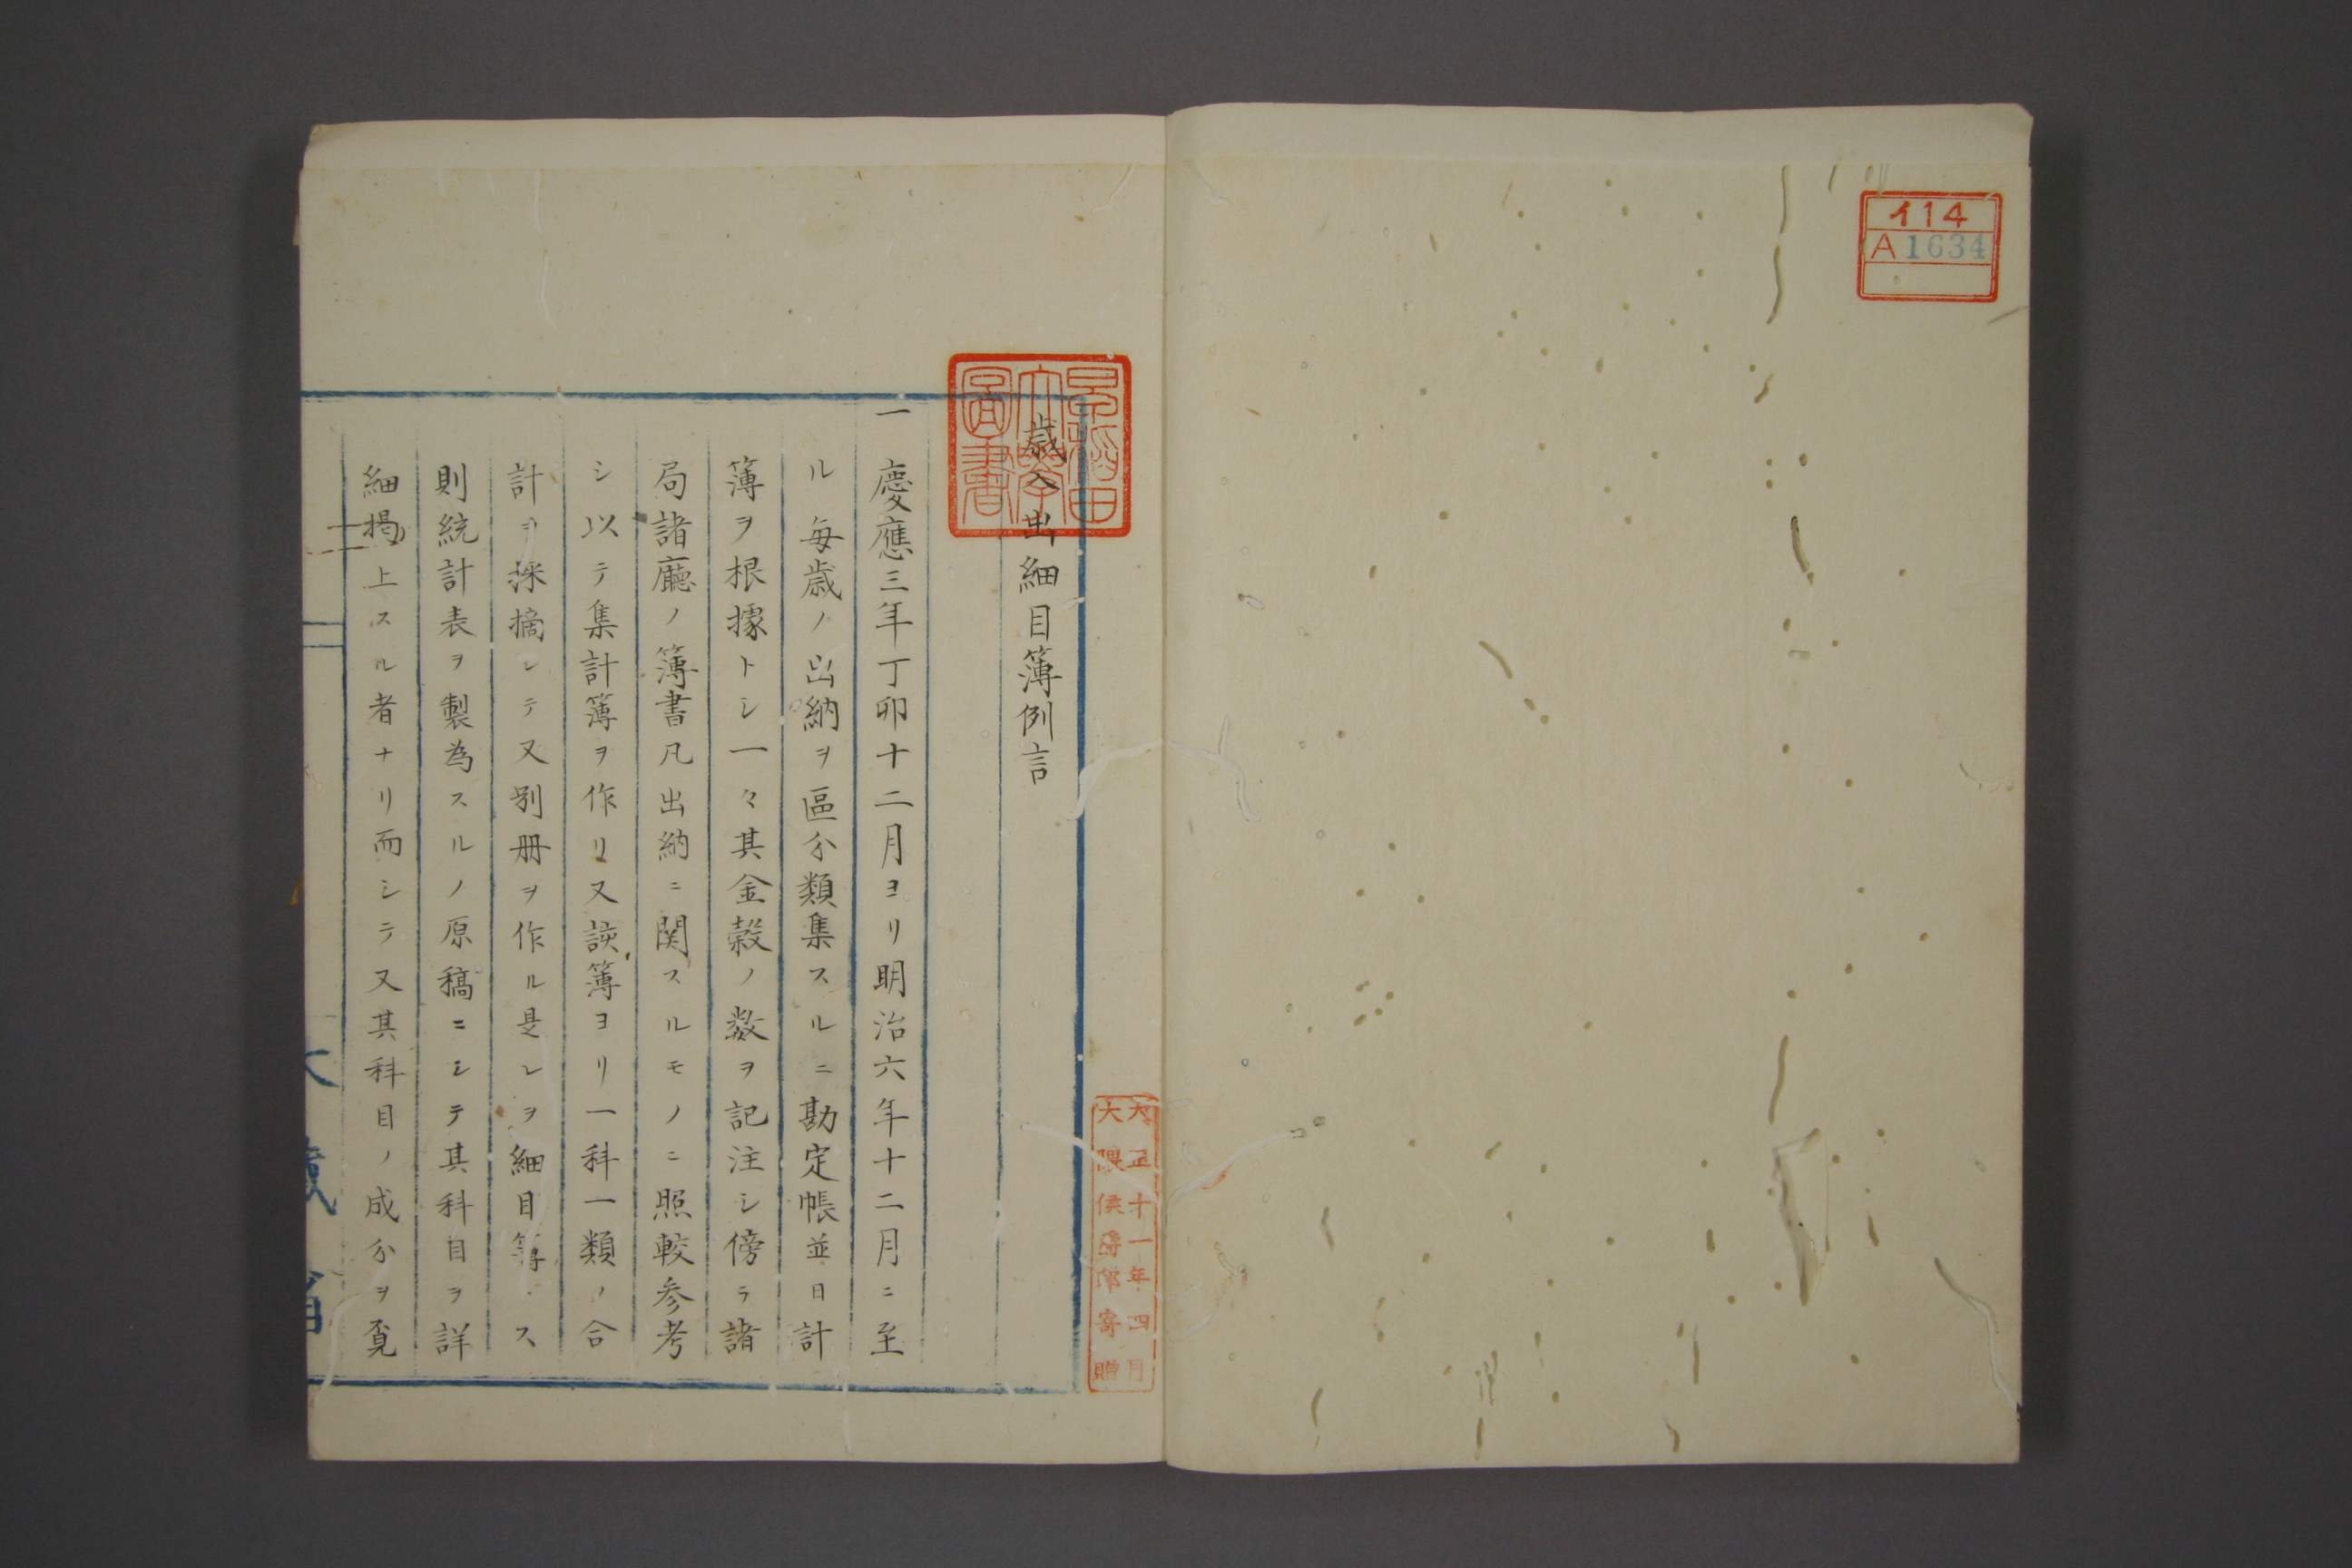 イ14
A 1634
早稲田大學圖書
大正十一年四月
大隈侯爵邸寄贈
歳入出細目簿例言
一慶應三年丁卯十二月ヨリ明治六年十二月ニ至
ル毎歳ノ出納ヲ區分類集スルニ勘定帳並日計
簿ヲ根據トシ一々其金穀ノ数ヲ記注シ傍ラ諸
局諸廳ノ簿書凡出納ニ関スルモノニ照較参考
シ以テ集計簿ヲ作リ又該簿ヨリ一科一類ノ合
計ヲ採摘シテ又別册ヲ作ル是レヲ細目簿トス
則統計表ヲ製為スルノ原稿ニシテ其科目ヲ詳
細掲上スル者ナリ而シテ又其科目ノ成分ヲ覔
大藏省